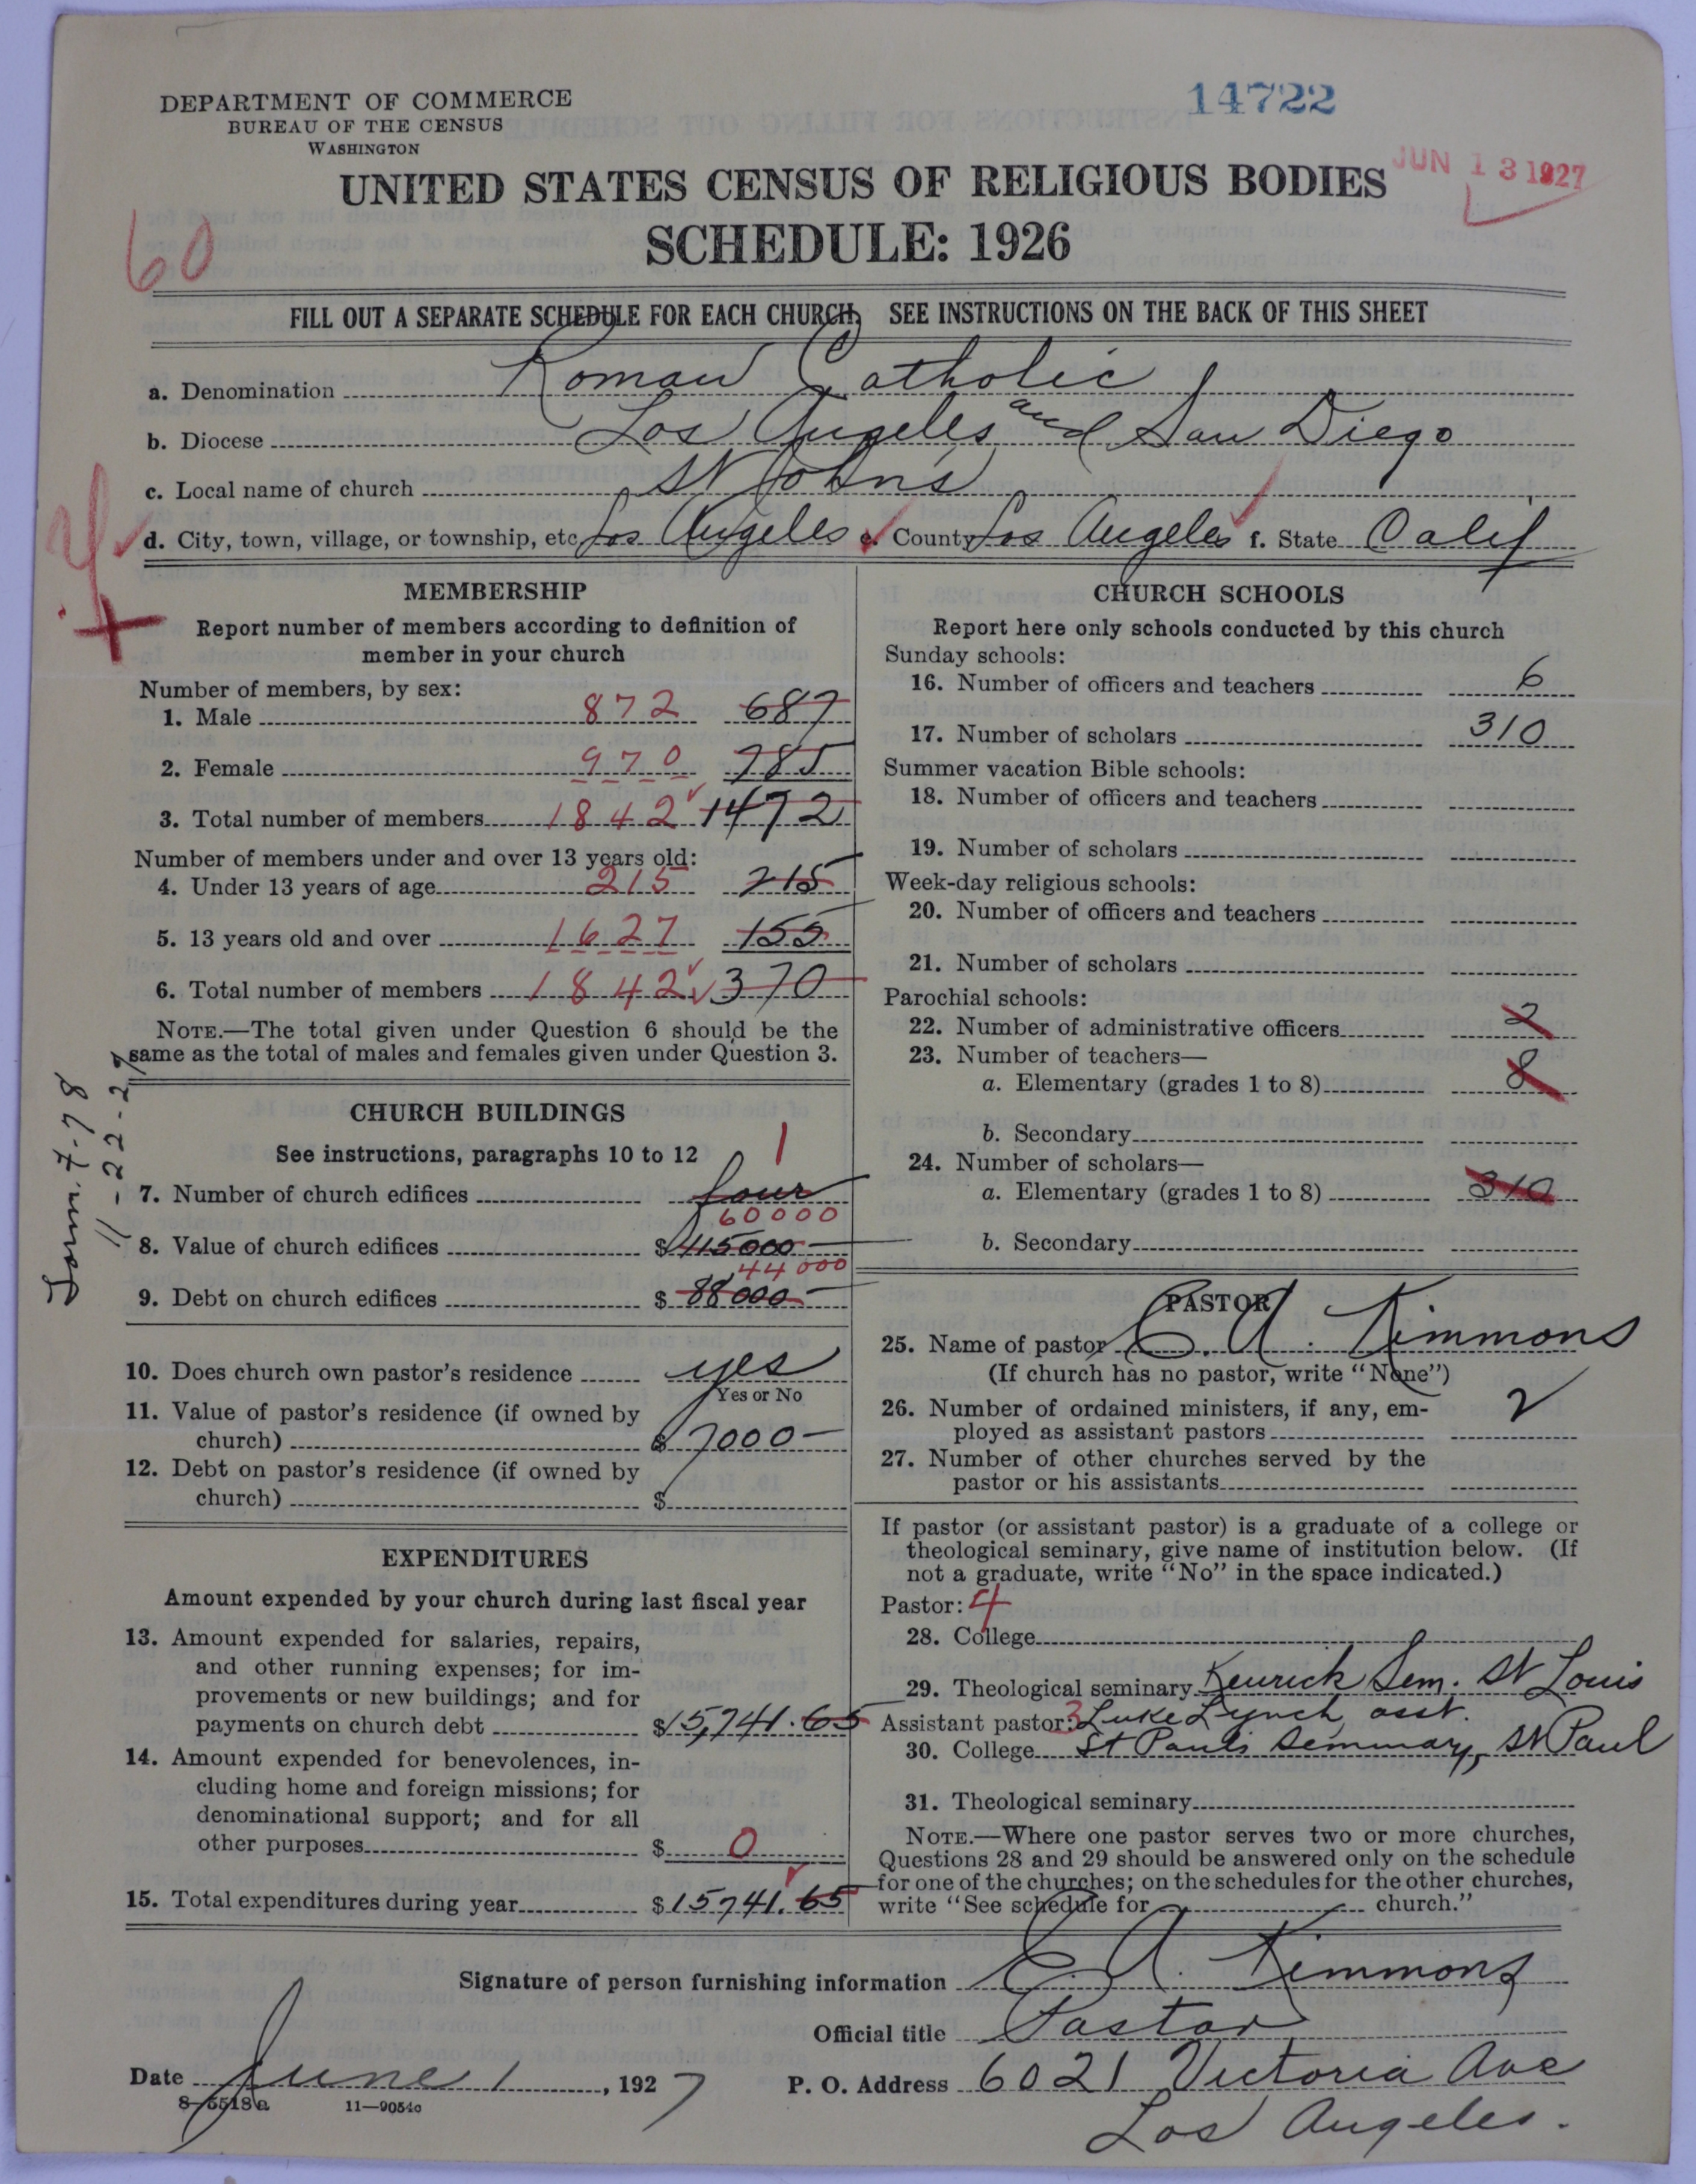 14722
DEPARTMENT OF COMMERCE
BUREAU OF THE CENSUS
WASHINGTON
JUN 13 1927
UNITED STATES CENSUS OF RELIGIOUS BODIES
SCHEDULE: 1926
60
FILL OUT A SEPARATE SCHEDULE FOR EACH CHURCH. SEE INSTRUCTIONS ON THE BACK OF THIS SHEET
a. Denomination Roman Catholic
b. Diocese Los Angeles and San Diego
c. Local name of church St John's
d. City, town, village, or township, etc. Los Angeles e. County Los Angeles f. State Calif
MEMBERSHIP
Report number of members according to definition of
member in your church
Number of members, by sex:
1. Male 872 687
2. Female 970 785
3. Total number of members 1842 1472
Number of members under and over 13 years old:
4. Under 13 years of age 215 215
5. 13 years old and over 1627 155
6. Total number of members 1842 370
NOTE.—The total given under Question 6 should be the
same as the total of males and females given under Question 3.
11-22-27
CHURCH BUILDINGS
See instructions, paragraphs 10 to 12
1
7. Number of church edifices four
60000
8. Value of church edifices $115000
44000
9. Debt on church edifices $ 88000
10. Does church own pastor's residence yes
Yes or No
11. Value of pastor's residence (if owned by
church) $ 7000
12. Debt on pastor's residence (if owned by
church) $
EXPENDITURES
Amount expended by your church during last fiscal year
13. Amount expended for salaries, repairs,
and other running expenses; for im-
provements or new buildings; and for
payments on church debt $15,741.65
14. Amount expended for benevolences, in-
cluding home and foreign missions; for
denominational support; and for all
other purposes $ 0
15. Total expenditures during year $15741.65
CHURCH SCHOOLS
Report here only schools conducted by this church
Sunday schools:
16. Number of officers and teachers 6
17. Number of scholars 310
Summer vacation Bible schools:
18. Number of officers and teachers
19. Number of scholars
Week-day religious schools:
20. Number of officers and teachers
21. Number of scholars
Parochial schools:
22. Number of administrative officers 2
23. Number of teachers—
a. Elementary (grades 1 to 8) 8
b. Secondary
24. Number of scholars—
a. Elementary (grades 1 to 8) 310
b. Secondary
PASTOR
25. Name of pastor C. A. Kimmons
(If church has no pastor, write "None")
26. Number of ordained ministers, if any, em-
ployed as assistant pastors 2
27. Number of other churches served by the
pastor or his assistants
If pastor (or assistant pastor) is a graduate of a college or
theological seminary, give name of institution below. (If
not a graduate, write "No" in the space indicated.)
Pastor: 4
28. College
29. Theological seminary Kenrick Sem. St Louis
Assistant pastor: 3 Luke Lynch, asst.
30. College St Pauls Seminary, St Paul
31. Theological seminary
NOTE.—Where one pastor serves two or more churches,
Questions 28 and 29 should be answered only on the schedule
for one of the churches; on the schedules for the other churches,
write "See schedule for church."
Signature of person furnishing information C. A. Kimmons
Official title Pastor
Date June 1, 1927 P. O. Address 6021 Victoria Ave
8—5518a 11—9054c
Los Angeles.